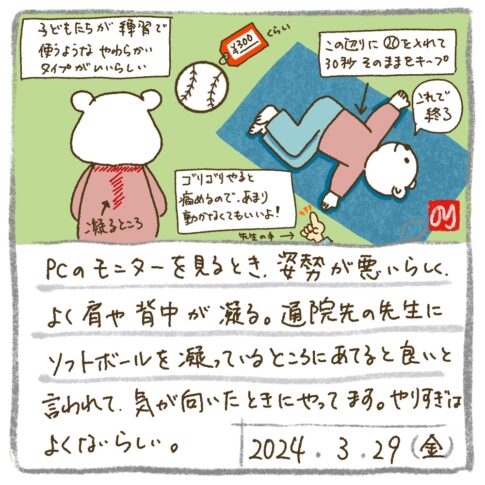 子どもたちが練習で
使うような やわらかい
タイプがいいらしい
¥300
くらい
この辺りに を入れて
30秒 そのままをキープ
これで
終了
凝るところ
ゴリゴリやると
痛めるので、あまり
動かなくてもいいよ!
先生の手→
PCのモニターを見るとき、姿勢が悪いらしく、
よく肩や背中が凝る。通院先の先生に
ソフトボールを凝っているところにあてると良いと
言われて、気が向いたときにやってます。やりすぎは
よくないらしい。
2024.3.29(金)